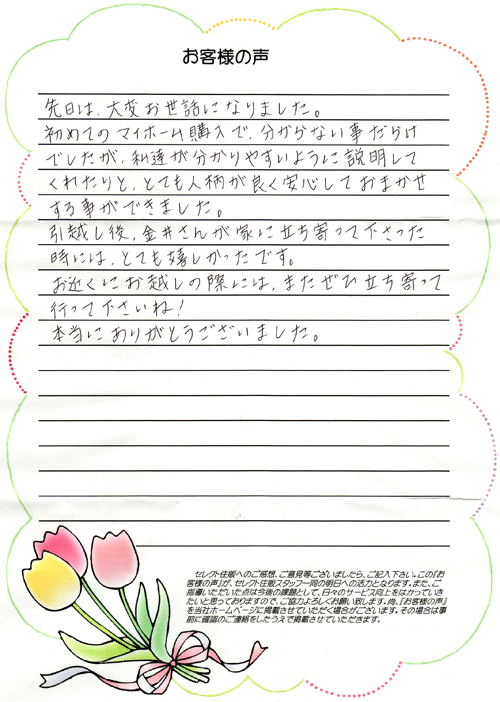 お客様の声
先日は、大変お世話になりました。
初めてのマイホーム購入で、分からない事だらけ
でしたが、私達が分かりやすいように説明して
くれたりと、とても人柄が良く安心しておまかせ
する事ができました。
引越し後、金井さんが家に立ち寄って下さった
時には、とても嬉しかったです。
お近くにお越しの際には、またぜひ立ち寄って
行って下さいね!
本当にありがとうございました。
セレクト住販へのご感想、ご意見等ございましたら、ご記入下さい。この『お
客様の声』が、セレクト住販スタッフ一同の明日への活力となります。また、ご
指導いただいた点は今後の課題として、日々のサービス向上をはかっていき
たいと思っておりますので、ご協力よろしくお願い致します。尚、『お客様の声』
を当社ホームページに掲載させていただく場合がございます。その場合は事
前に確認のご連絡をしたうえで掲載させていただきます。